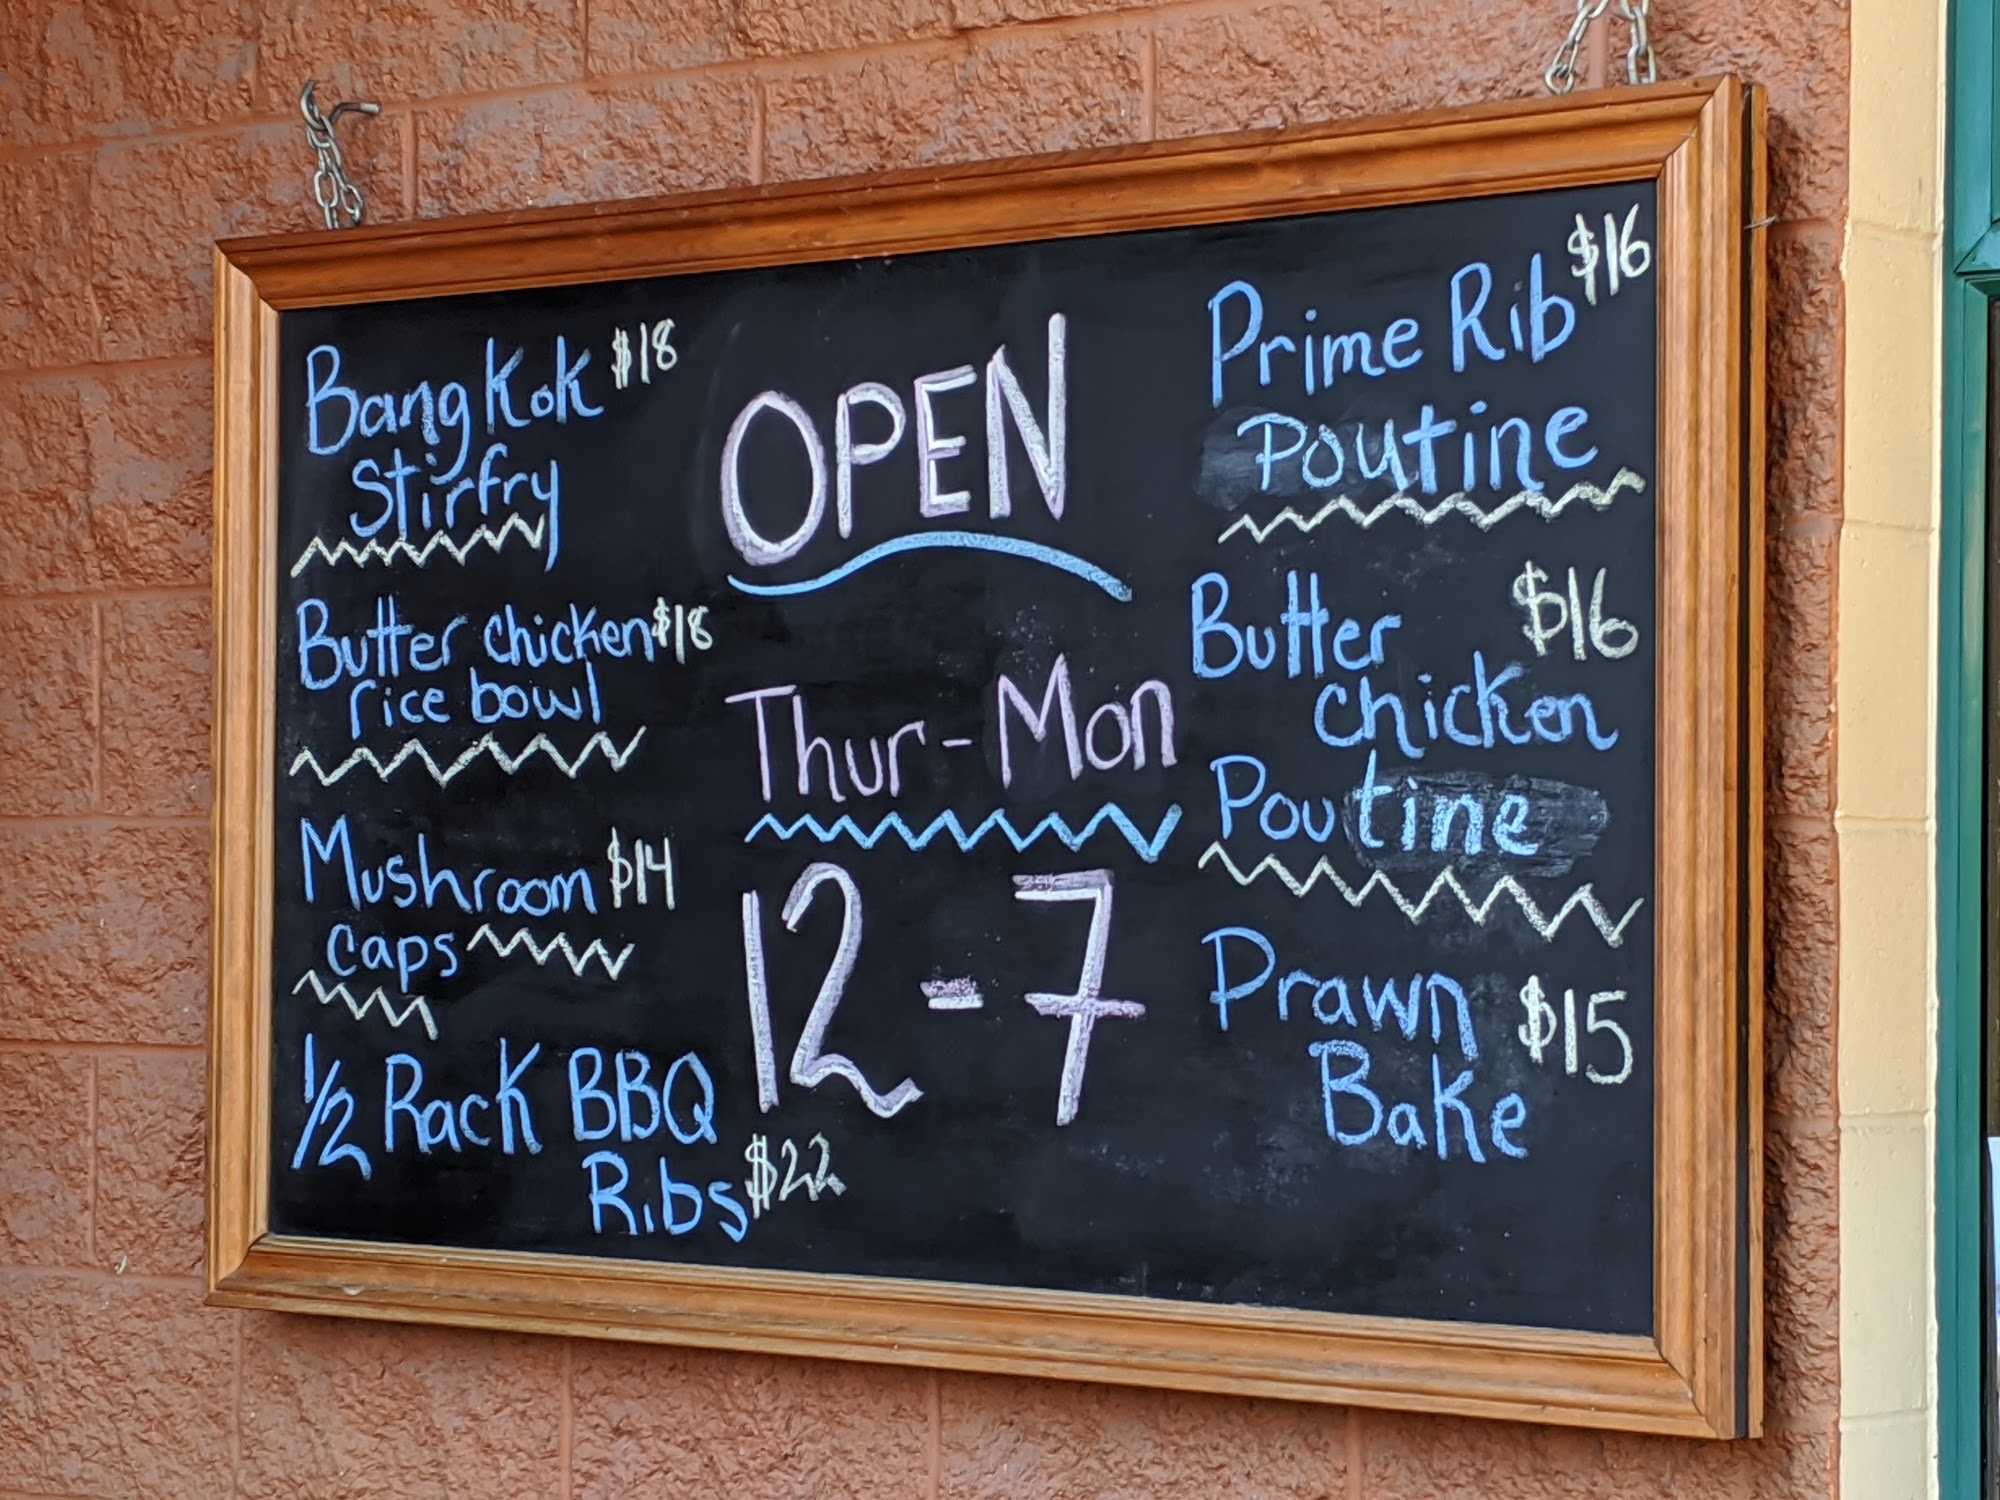 Bangkok $18
Stirfry
Butter chicken $18
rice bowl
Mushroom $14
caps
1/2 Rack BBQ
Ribs $22
OPEN
Thur-Mon
12-7
Prime Rib $16
Poutine
Butter $16
chicken
Poutine
Prawn $15
Bake